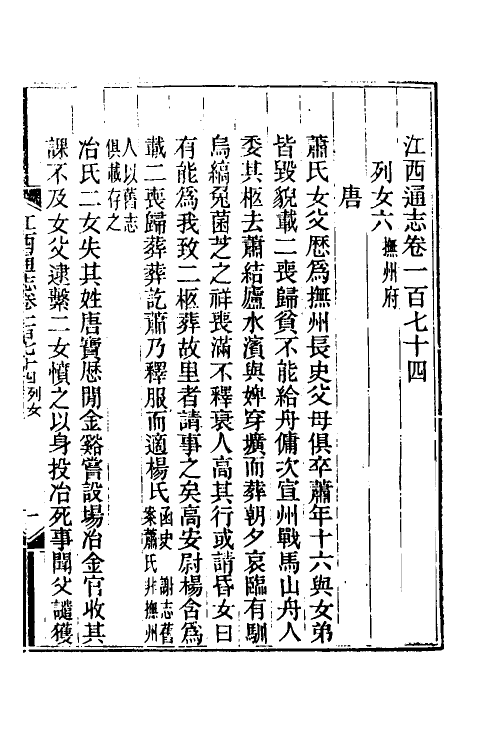 江西通志卷一百七十四
列女六 撫州府
唐
蕭氏女父歷爲撫州長史父母俱卒蕭年十六與女弟
皆毀貌載二喪歸貧不能給舟傭次宣州戰馬山舟人
委其柩去蕭結廬水濱與婢穿壙而葬朝夕哀臨有馴
烏縞兔菌芝之祥喪滿不釋衰人高其行或請昏女曰
有能爲我致二柩葬故里者請事之矣高安尉楊含爲
載二喪歸葬葬訖蕭乃釋服而適楊氏 函史 謝志舊
案蕭氏非撫州
人以舊志
俱載存之
冶氏二女失其姓唐寶歷閒金谿嘗設場冶金官收其
課不及女父逮繫二女憤之以身投冶死事聞父譴獲
江西通志卷一百七十四 列女 一